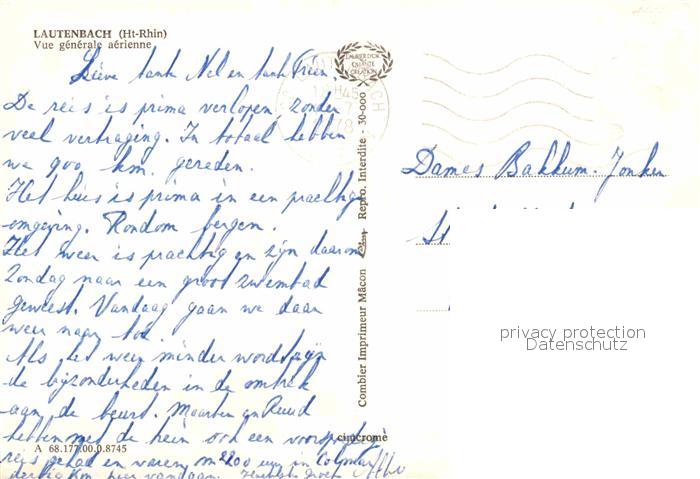 LAUTENBACH (Ht-Rhin)
Vue générale aérienne
Lieve tante Nel en tante Trien.
De reis is prima verlopen, zonder
veel vertraging. In totaal hebben
we 900 km. gereden.
Het huis is prima in een prachtige
omgeving. Rondom bergen.
Het weer is prachtig en zijn daarom
Zondag naar een groot zwembad
geweest. Vandaag gaan we daar
weer naar toe.
Als het weer minder wordt zijn
de bijzonderheden in de omtrek
aan de beurt. Maarten en Ruud
hebben met de trein ook een voorspoedige
reis gehad en waren om 2200 uur in Colmar
dertig km. hier vandaan.
A 68.177.00.0.8745
Combier Imprimeur Mâcon
Repro. Interdite - 30-000
cimcrome
Dames Bakkum-Jonker
St
privacy protection
Datenschutz